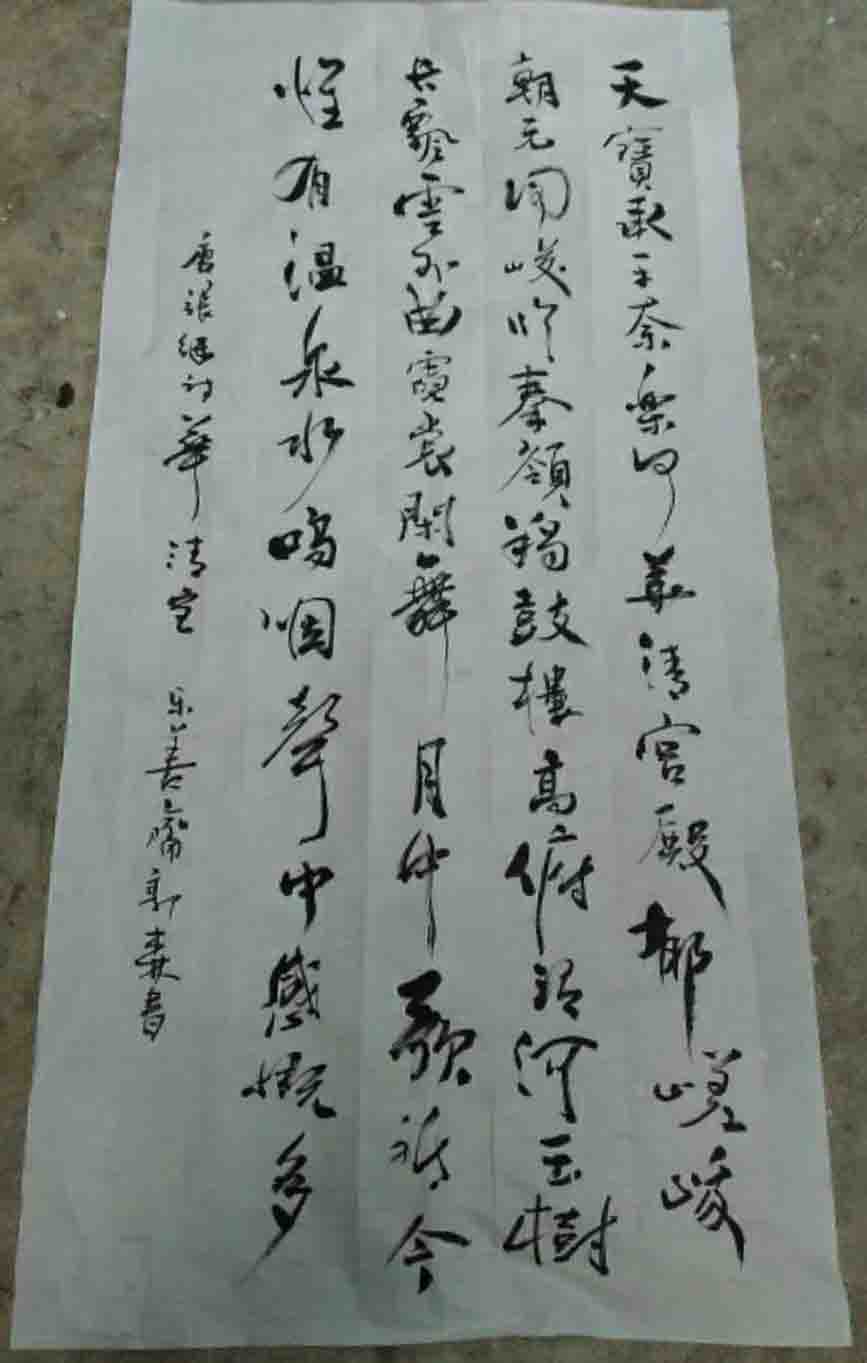 天寶承平奈樂何華清宮殿郁嵯峻
朝元阁峻临秦嶺羯鼓樓高俯渭河玉樹
长飄雲外曲霓裳閑舞月中歌祗今
惟有温泉水嗚咽聲中感慨多
唐張继诗華清宮 乐善齋郭森書